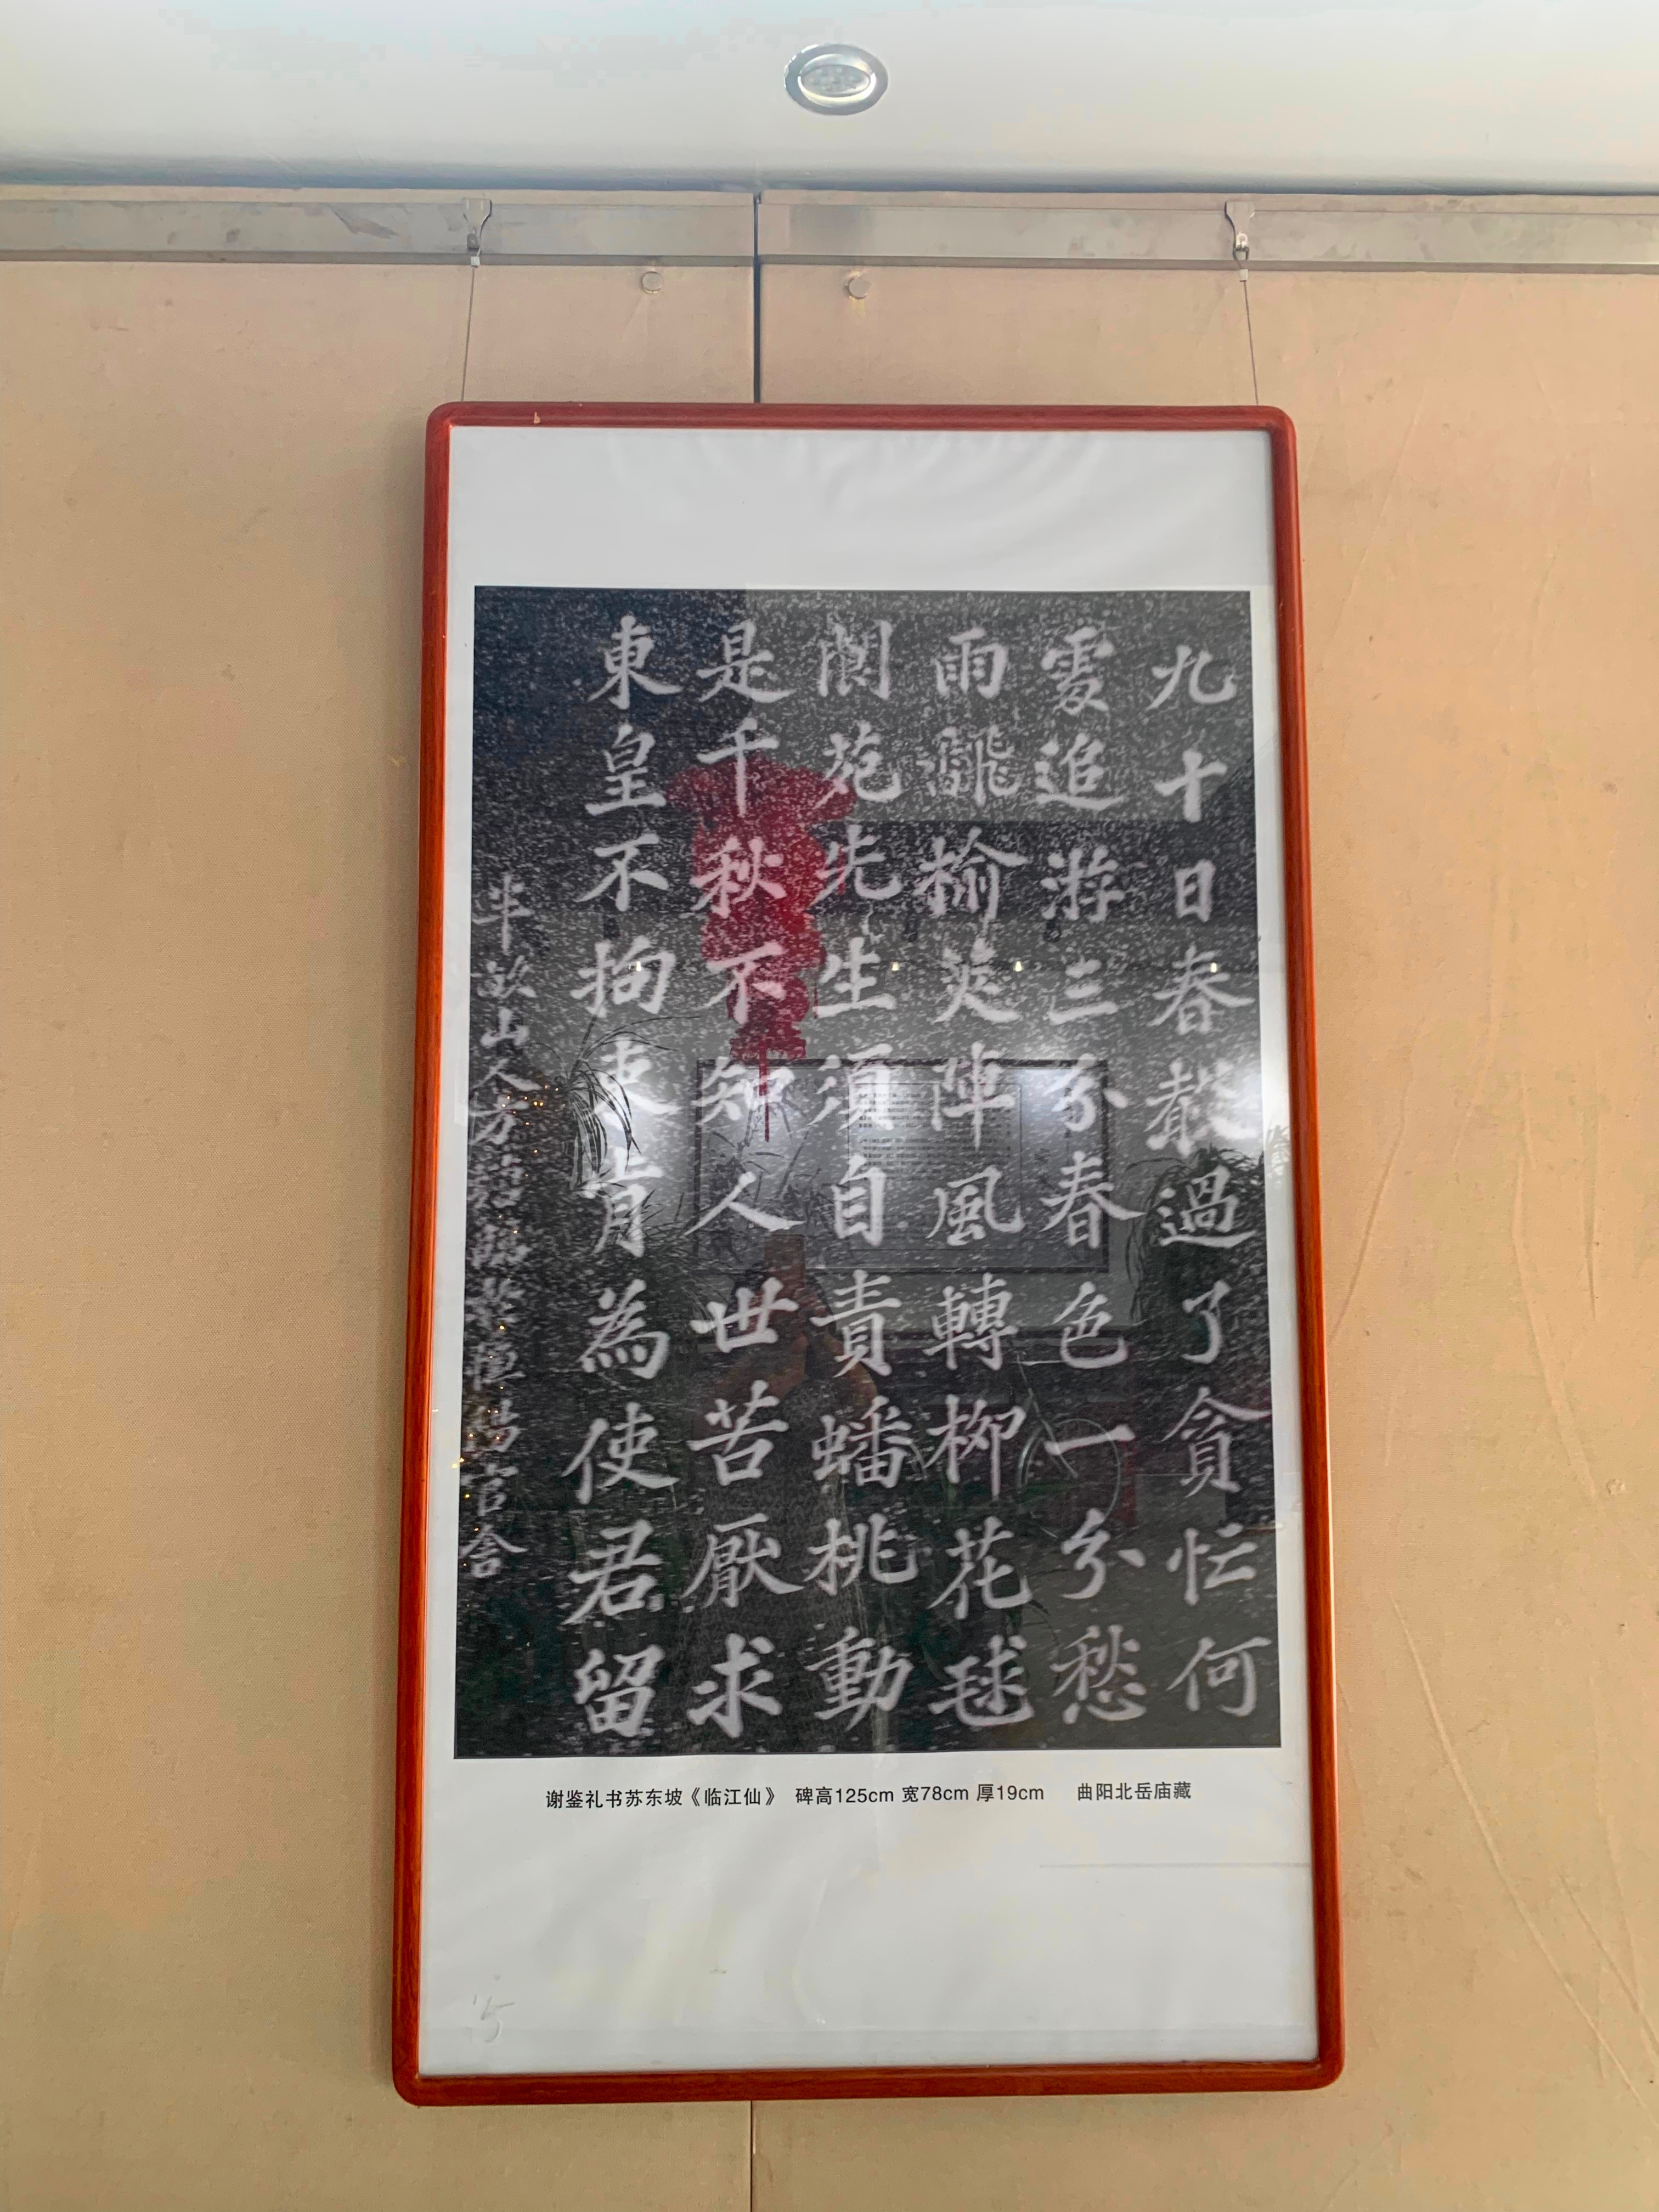 九十日春都過了貪忙何
處追游三分春色一分愁
雨翻榆莢陣風轉柳花毬
閬苑先生須自責蟠桃動
是千秋不知人世苦厭求
東皇不拘束肯為使君留
山人
官舍
谢鉴礼书苏东坡《临江仙》 碑高125cm 宽78cm 厚19cm 曲阳北岳庙藏